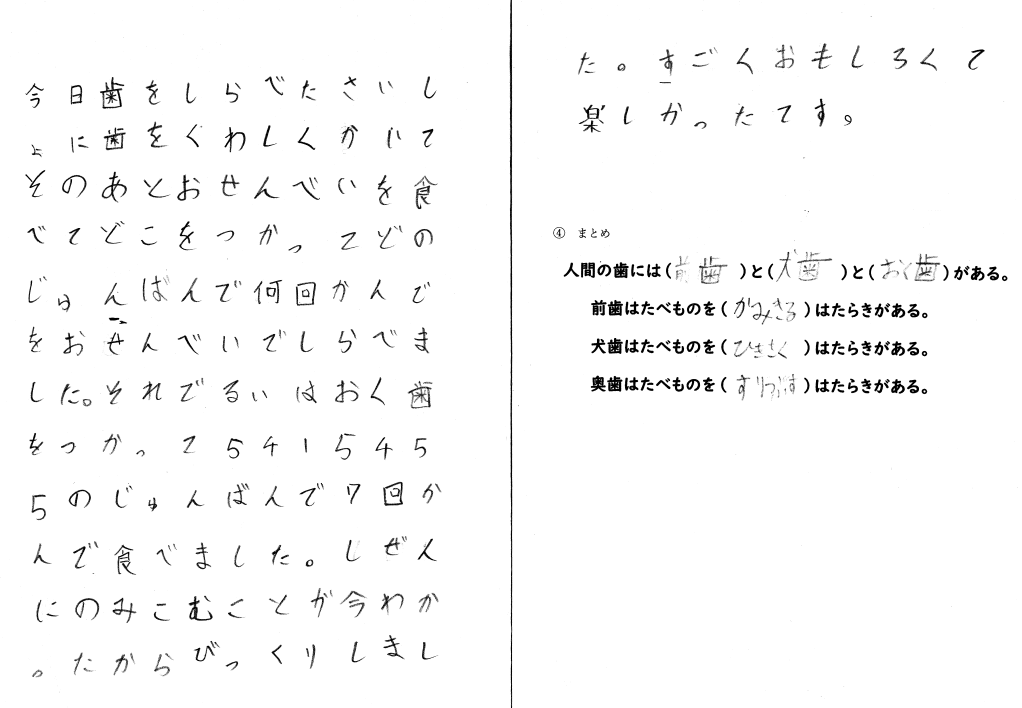 今日歯をしらべたさいし
ょに歯をくわしくかいて
そのあとおせんべいを食
べてどこをつかってどの
じゅんばんで何回かんで
をおせんべいでしらべま
した。それでるいはおく歯
をつかって541545
5のじゅんばんで7回か
んで食べました。しぜん
にのみこむことが今わか
。たからびっくりしまし
た。すごくおもしろくて
楽しかったてす。
④ まとめ
人間の歯には(前歯)と(犬歯)と(おく歯)がある。
前歯はたべものを(かみきる)はたらきがある。
犬歯はたべものを(ひきさく)はたらきがある。
奥歯はたべものを(すりつぶす)はたらきがある。